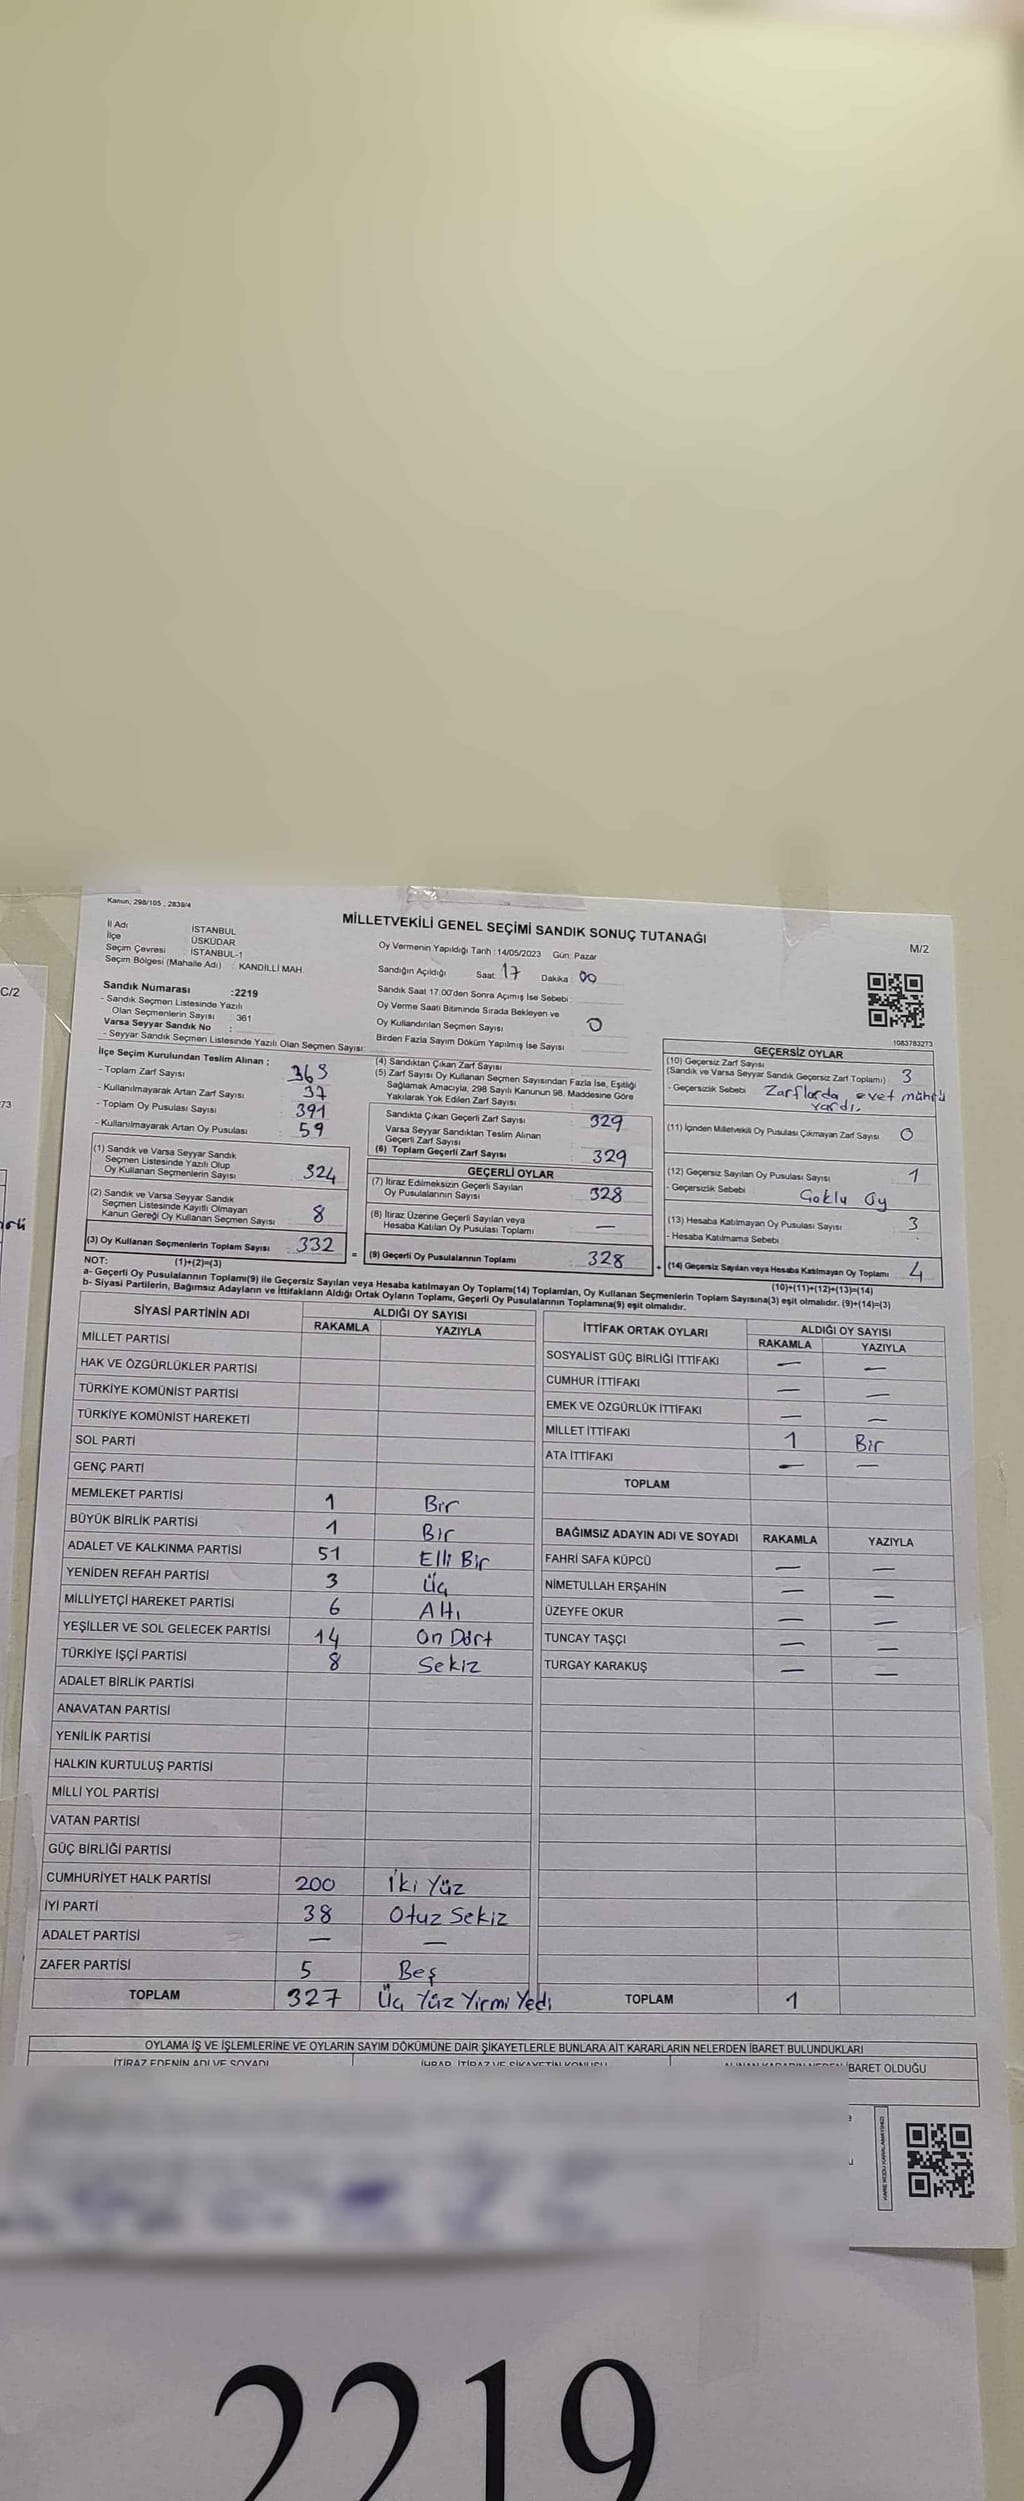 Kanun; 298/105 , 2839/4
MİLLETVEKİLİ GENEL SEÇİMİ SANDIK SONUÇ TUTANAĞI
M/2
İl Adı İSTANBUL
İlçe ÜSKÜDAR
Seçim Çevresi İSTANBUL-1
Seçim Bölgesi (Mahalle Adı) : KANDİLLİ MAH.
Oy Vermenin Yapıldığı Tarih :14/05/2023 Gün: Pazar
Sandığın Açıldığı Saat: 17 Dakika 00
Sandık Saat 17.00'den Sonra Açımış İse Sebebi :
Oy Verme Saati Bitiminde Sırada Bekleyen ve
Oy Kullandırılan Seçmen Sayısı 0
Birden Fazla Sayım Döküm Yapılmış İse Sayısı
Sandık Numarası :2219
- Sandık Seçmen Listesinde Yazılı
Olan Seçmenlerin Sayısı : 361
Varsa Seyyar Sandık No :
- Seyyar Sandık Seçmen Listesinde Yazılı Olan Seçmen Sayısı:
1083783273
İlçe Seçim Kurulundan Teslim Alınan ;
- Toplam Zarf Sayısı
- Kullanılmayarak Artan Zarf Sayısı 37
- Toplam Oy Pusulası Sayısı : 391
- Kullanılmayarak Artan Oy Pusulası : 59
(1) Sandık ve Varsa Seyyar Sandık
Seçmen Listesinde Yazılı Olup
Oy Kullanan Seçmenlerin Sayısı 324
(2) Sandık ve Varsa Seyyar Sandık
Seçmen Listesinde Kayıtlı Olmayan
Kanun Gereği Oy Kullanan Seçmen Sayısı 8
(3) Oy Kullanan Seçmenlerin Toplam Sayısı : 332
(4) Sandıktan Çıkan Zarf Sayısı
(5) Zarf Sayısı Oy Kullanan Seçmen Sayısından Fazla İse, Eşitliği
Sağlamak Amacıyla, 298 Sayılı Kanunun 98. Maddesine Göre
Yakılarak Yok Edilen Zarf Sayısı
Sandıkta Çıkan Geçerli Zarf Sayısı : 329
Varsa Seyyar Sandıktan Teslim Alınan
Geçerli Zarf Sayısı
(6) Toplam Geçerli Zarf Sayısı : 329
GEÇERLİ OYLAR
(7) İtiraz Edilmeksizin Geçerli Sayılan
Oy Pusulalarının Sayısı : 328
(8) İtiraz Üzerine Geçerli Sayılan veya
Hesaba Katılan Oy Pusulası Toplamı : —
= (9) Geçerli Oy Pusulalarının Toplamı : 328 +
GEÇERSİZ OYLAR
(10) Geçersiz Zarf Sayısı
(Sandık ve Varsa Seyyar Sandık Geçersiz Zarf Toplamı) 3
- Geçersizlik Sebebi Zarflarda evet mührü
vardı.
(11) İçinden Milletvekili Oy Pusulası Çıkmayan Zarf Sayısı 0
(12) Geçersiz Sayılan Oy Pusulası Sayısı 1
- Geçersizlik Sebebi Çoklu Oy
(13) Hesaba Katılmayan Oy Pusulası Sayısı 3
- Hesaba Katılmama Sebebi :
(14) Geçersiz Sayılan veya Hesaba Katılmayan Oy Toplamı 4
NOT: (1)+(2)=(3) (10)+(11)+(12)+(13)=(14)
a- Geçerli Oy Pusulalarının Toplamı(9) ile Geçersiz Sayılan veya Hesaba katılmayan Oy Toplamı(14) Toplamları, Oy Kullanan Seçmenlerin Toplam Sayısına(3) eşit olmalıdır. (9)+(14)=(3)
b- Siyasi Partilerin, Bağımsız Adayların ve İttifakların Aldığı Ortak Oyların Toplamı, Geçerli Oy Pusulalarının Toplamına(9) eşit olmalıdır.
SİYASİ PARTİNİN ADI ALDIĞI OY SAYISI
RAKAMLA YAZIYLA
MİLLET PARTİSİ
HAK VE ÖZGÜRLÜKLER PARTİSİ
TÜRKİYE KOMÜNİST PARTİSİ
TÜRKİYE KOMÜNİST HAREKETİ
SOL PARTİ
GENÇ PARTİ
MEMLEKET PARTİSİ 1 Bir
BÜYÜK BİRLİK PARTİSİ 1 Bir
ADALET VE KALKINMA PARTİSİ 51 Elli Bir
YENİDEN REFAH PARTİSİ 3 Üç
MİLLİYETÇİ HAREKET PARTİSİ 6 Altı
YEŞİLLER VE SOL GELECEK PARTİSİ 14 On Dört
TÜRKİYE İŞÇİ PARTİSİ 8 Sekiz
ADALET BİRLİK PARTİSİ
ANAVATAN PARTİSİ
YENİLİK PARTİSİ
HALKIN KURTULUŞ PARTİSİ
MİLLİ YOL PARTİSİ
VATAN PARTİSİ
GÜÇ BİRLİĞİ PARTİSİ
CUMHURİYET HALK PARTİSİ 200 İki Yüz
İYİ PARTİ 38 Otuz Sekiz
ADALET PARTİSİ — —
ZAFER PARTİSİ 5 Beş
TOPLAM 327 Üç Yüz Yirmi Yedi
İTTİFAK ORTAK OYLARI ALDIĞI OY SAYISI
RAKAMLA YAZIYLA
SOSYALİST GÜÇ BİRLİĞİ İTTİFAKI — —
CUMHUR İTTİFAKI — —
EMEK VE ÖZGÜRLÜK İTTİFAKI — —
MİLLET İTTİFAKI 1 Bir
ATA İTTİFAKI — —
TOPLAM
BAĞIMSIZ ADAYIN ADI VE SOYADI RAKAMLA YAZIYLA
FAHRİ SAFA KÜPCÜ — —
NİMETULLAH ERŞAHİN — —
ÜZEYFE OKUR — —
TUNCAY TAŞÇI — —
TURGAY KARAKUŞ — —
TOPLAM 1
OYLAMA İŞ VE İŞLEMLERİNE VE OYLARIN SAYIM DÖKÜMÜNE DAİR ŞİKAYETLERLE BUNLARA AİT KARARLARIN NELERDEN İBARET BULUNDUKLARI
İTİRAZ EDENİN ADI VE SOYADI İHBAR, İTİRAZ VE ŞİKAYETİN KONUSU ALINAN KARARIN NEDEN İBARET OLDUĞU
2219
C/2
73